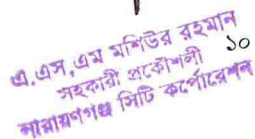 এ.এস,এম মশিউর রহমান
সহকারী প্রকৌশলী
নারায়ণগঞ্জ সিটি কর্পোরেশন
১০